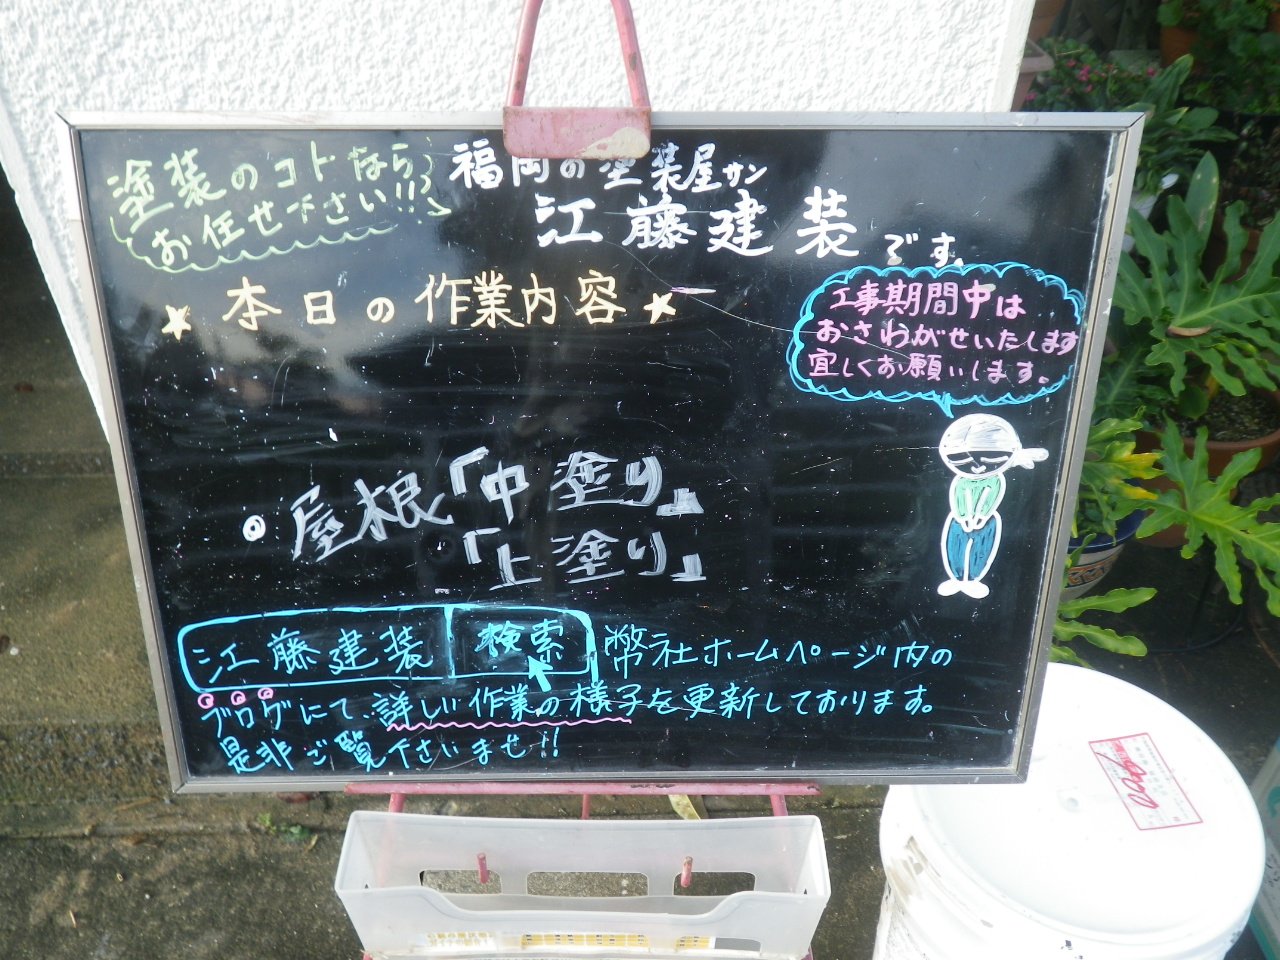 塗装のコトなら
お任せ下さい!!
福岡の塗装屋サン
江藤建装です。
★本日の作業内容★
工事期間中は
おさわがせいたします
宜しくお願いします。
◎屋根「中塗り」
「上塗り」
江藤建装 検索 弊社ホームページ内の
ブログにて詳しい作業の様子を更新しております。
是非ご覧下さいませ!!